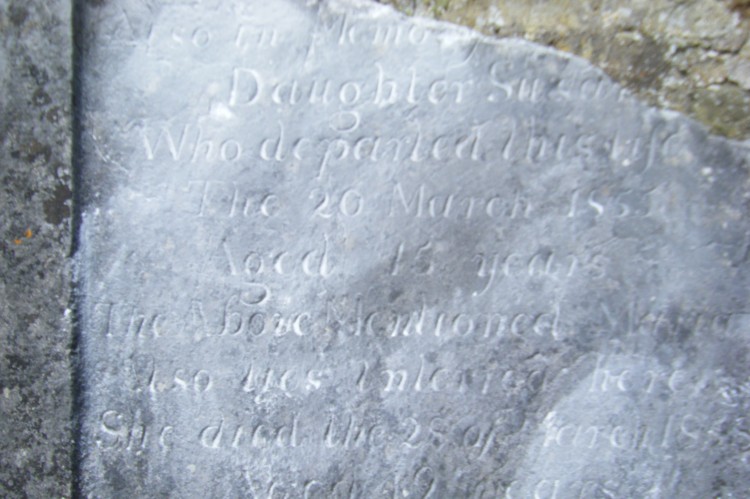 Also in Memory
Daughter Susan
Who departed this life
The 20 March
Aged 15 years
The Above Mentioned Maria
Also lyes Interred here
She died the 28 of March
Aged years